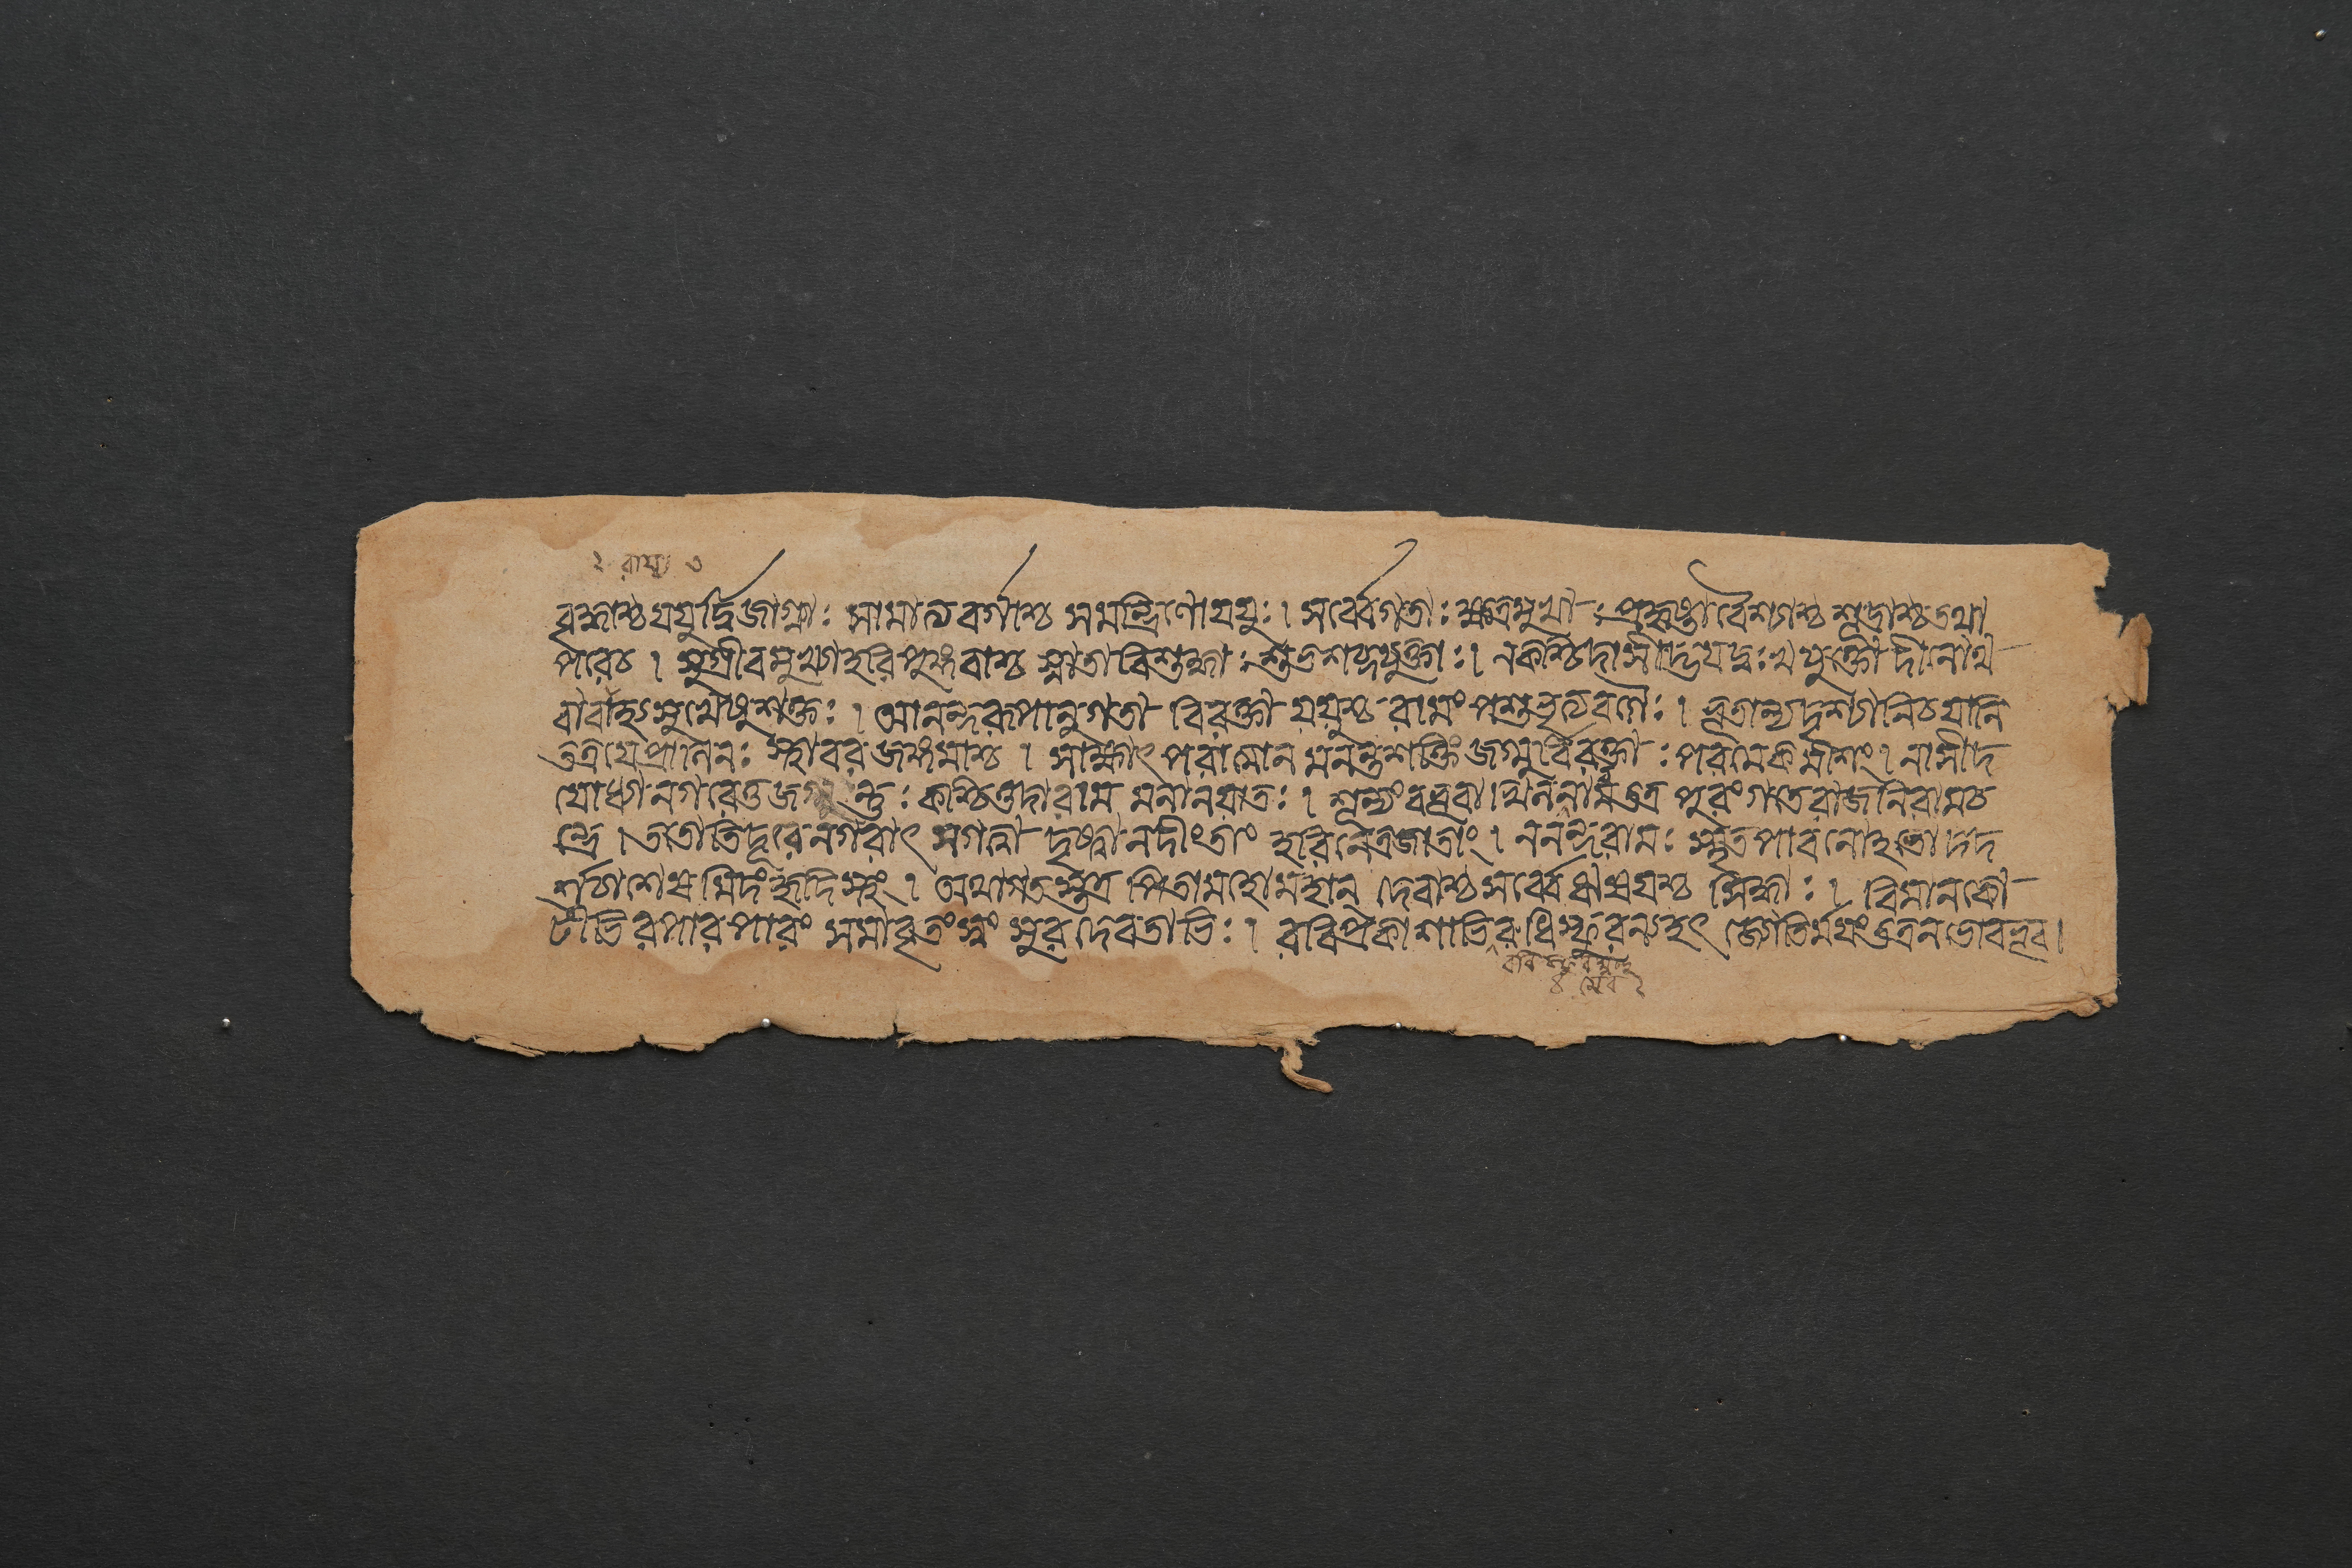 ২ রাম ৩
বৃদ্ধাশ্চ যযুর্দ্বিজাগ্র্যাঃ সামাত্যবর্গাশ্চ সমন্ত্রিণো যযুঃ। সর্ব্বেগতাঃ ক্ষত্রমুখাঃ প্রহৃষ্টা বৈশ্যাশ্চ শূদ্রাশ্চ তথা
পরে চ। সুগ্রীবমুখ্যা হরিপুঙ্গবাশ্চ স্নাতা বিশুদ্ধাঃ শুভশব্দযুক্তাঃ। ন কশ্চিদাসীদ্ভবদুঃখযুক্তো দীনোথ
বাবাহ্যসুখেষু শক্তঃ। আনন্দরূপানুগতা বিরক্তা যযুশ্চ রামং পশুভৃত্যবর্গৈঃ। ভূতান্যদৃশ্যানি চ যানি
তত্র যে প্রাণিনঃ স্থাবরজঙ্গমাশ্চ। সাক্ষাৎ পরাত্মানমনন্তশক্তিং জগ্মুর্বিরক্তাঃ পরমেকমীশং। নাসীদ
যোধ্যা নগরেতু জন্তুঃ কশ্চিত্তদা রামমনা ন যাতঃ। শূন্যং বভূবাখিলমেব তত্র পুরং গতে রাজনি রামচ
ন্দ্রে। ততোতিদূরং নগরাৎ সগত্বা দৃষ্ট্বা নদীং তাং হরিনেত্রজাতাং। ননন্দ রামঃ স্মৃতপাবনোহতো দদ
র্শ চাশেষমিদং হৃদিস্থং। অথাগতস্তত্র পিতামহো মহান্ দেবাশ্চ সর্ব্বে ঋষয়শ্চ সিদ্ধাঃ। বিমানকো
টীভিরপারপারং সমাবৃতং খং সুরদেবতাভিঃ। রবিপ্রকাশাভিরভিস্ফুরন্মহৎ জ্যোতির্ময়ং তত্র নভো বভূব।